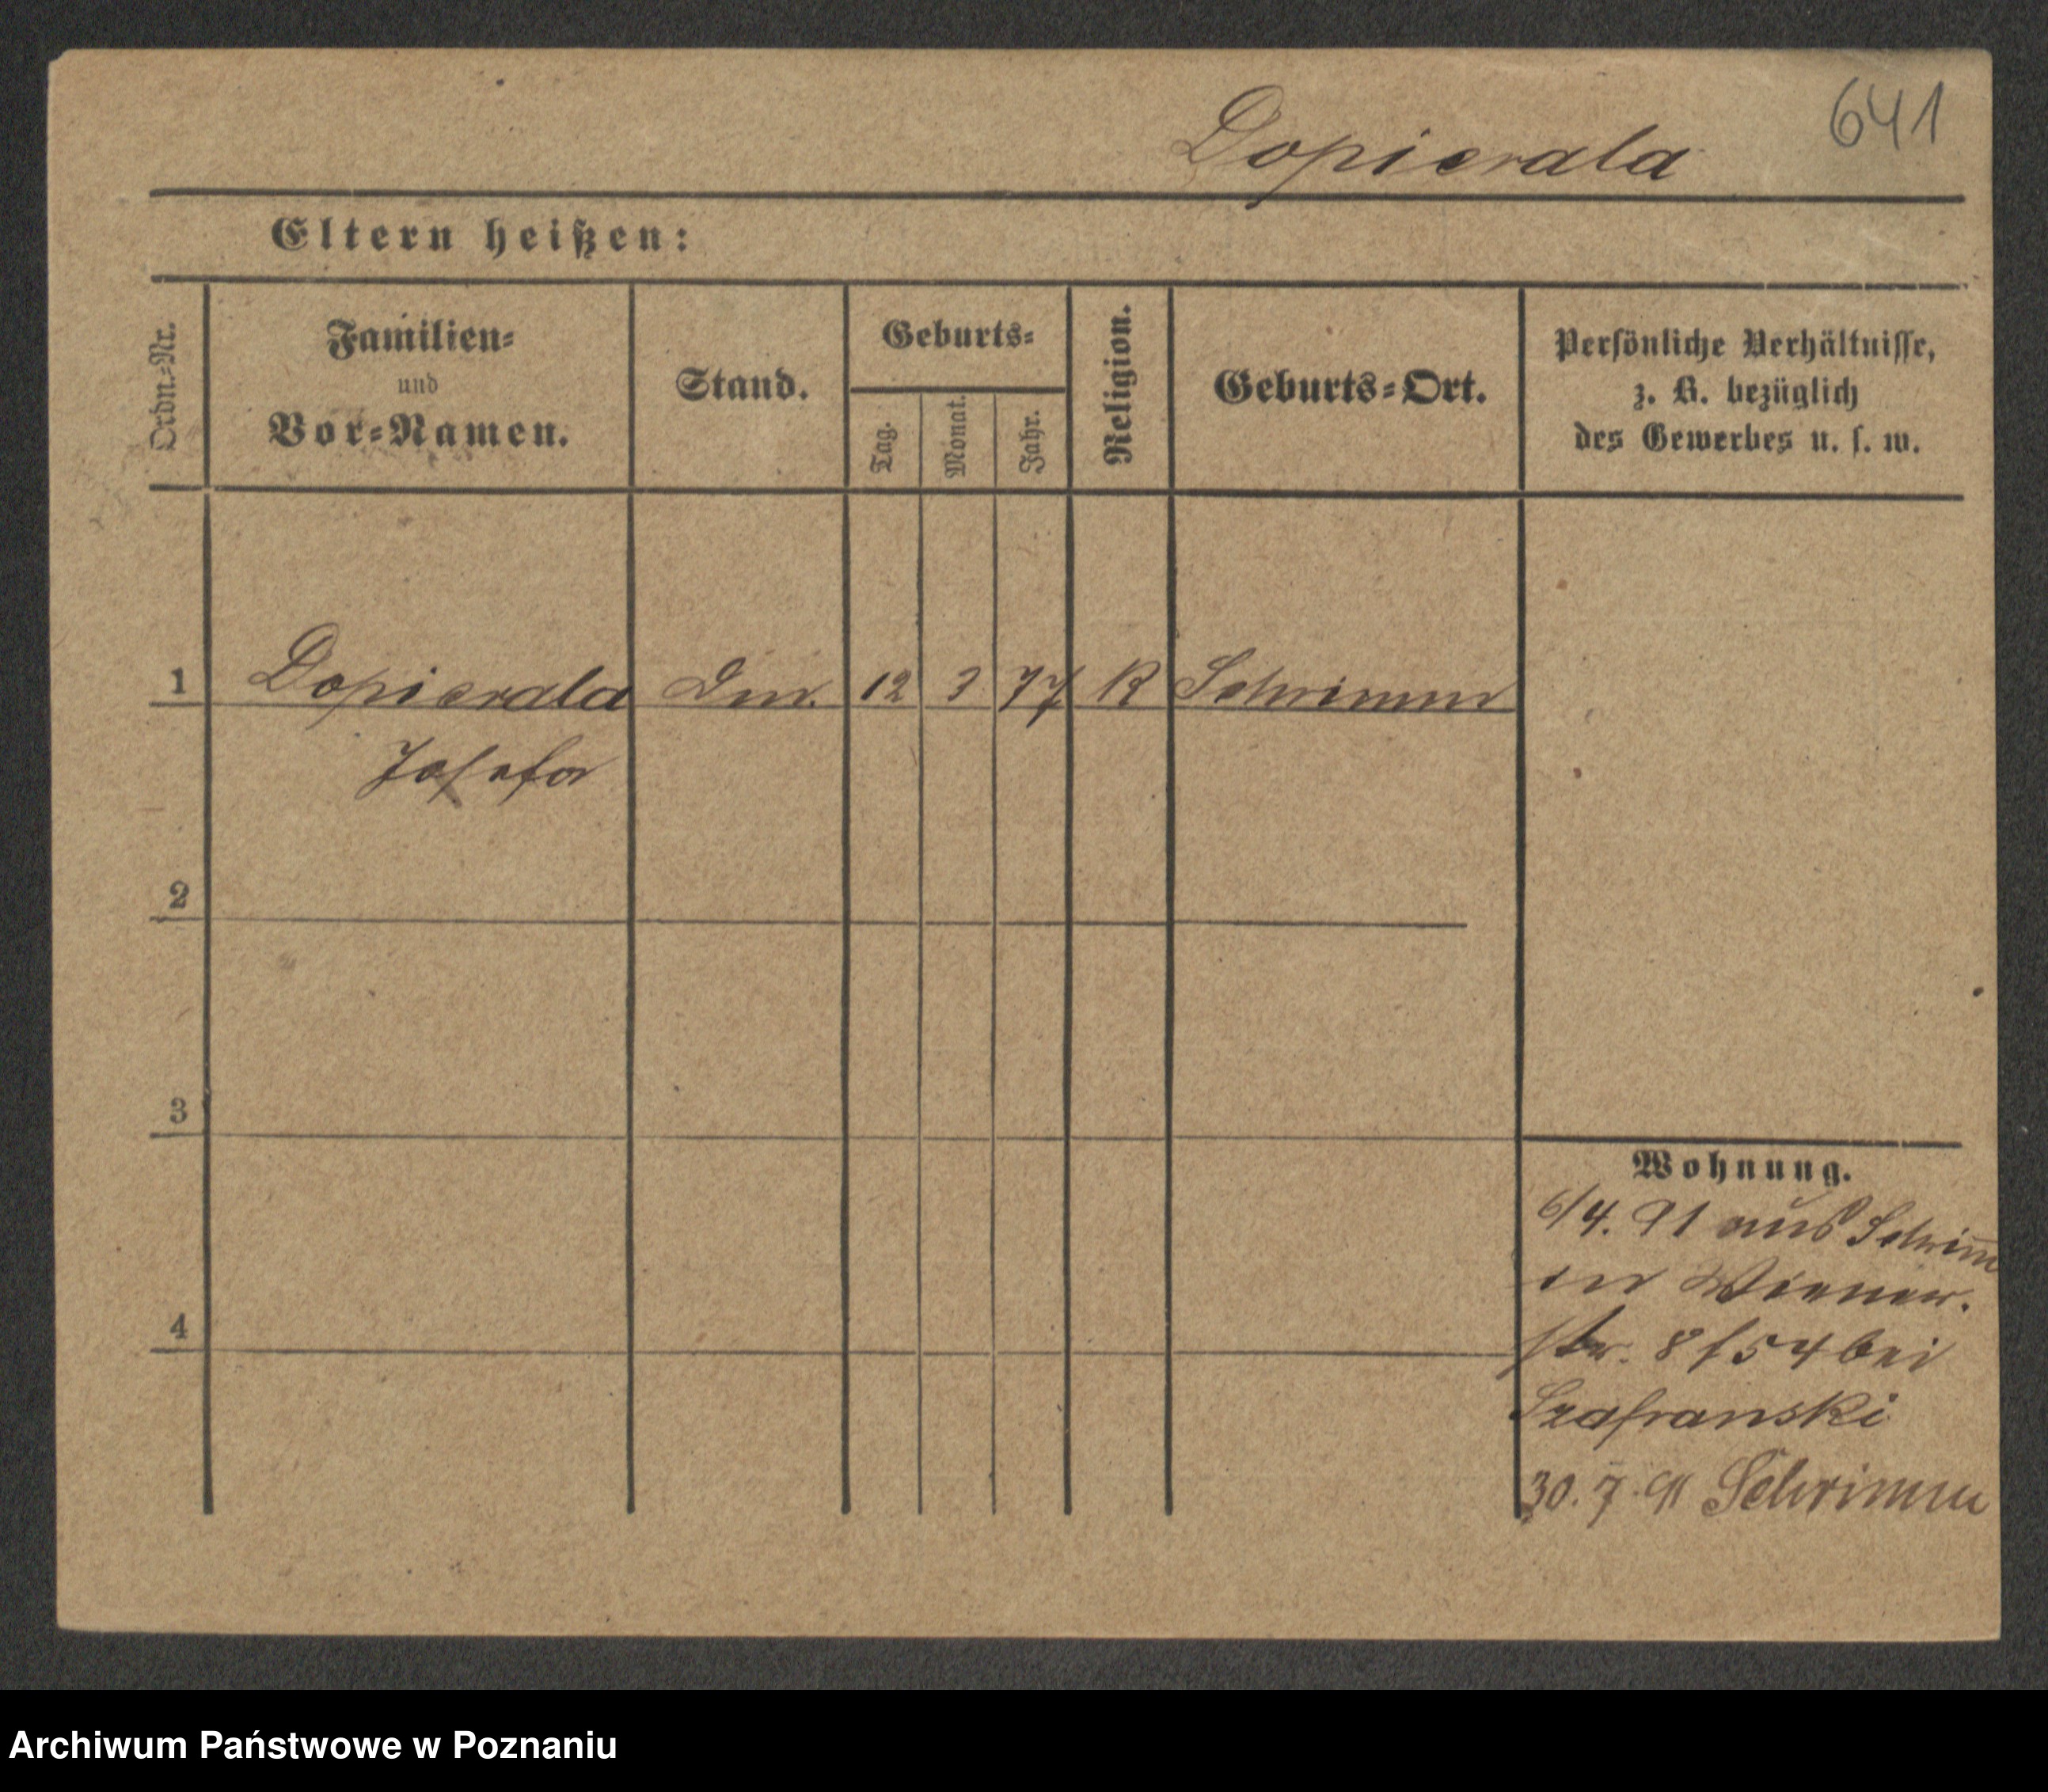 641
Dopierala
Eltern heißen:
Ordn.-Nr.
Familien-
und
Vor-Namen.
Stand.
Geburts-
Tag.
Monat.
Jahr.
Religion.
Geburts-Ort.
Persönliche Verhältnisse,
z. B. bezüglich
des Gewerbes u. s. w.
1 Dopierala 12 3 77 K Schrimm
Josefa
2
3
4
Wohnung.
6/4. 91 aus Schrim̄
in Wiener-
str. 8 f 54 bei
Szafranski
30. 7. 91 Schrimm
Archiwum Państwowe w Poznaniu